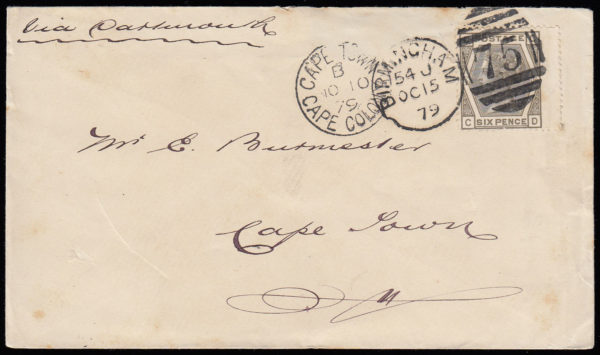 Via Dartmouth
CAPE TOWN
B
NO 10
79
CAPE COLONY
BIRMINGHAM
54 J
OC 15
79
POSTAGE
75
C SIX PENCE D
Mr E. Burmester
Cape Town